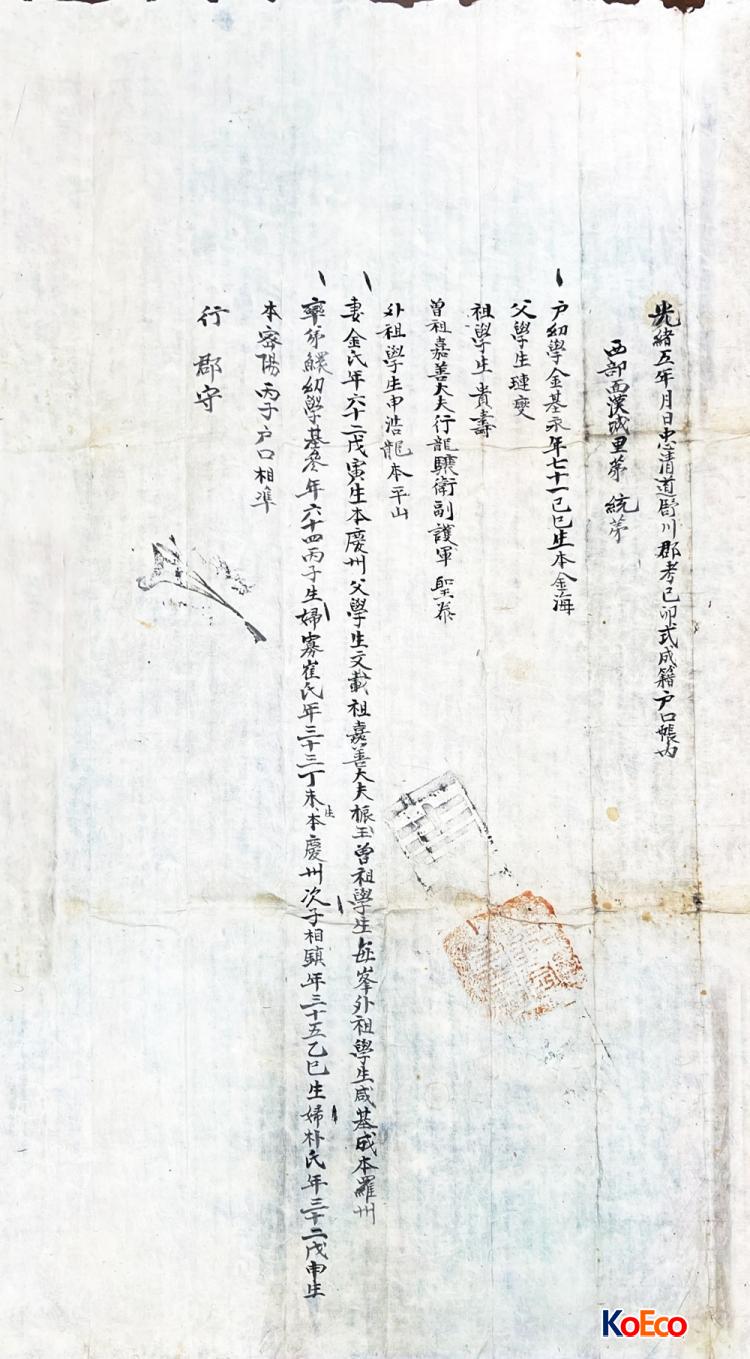 光緖五年月日忠清道舒川郡考己卯式成籍户口帳內
西部面漢城里苐 統苐
户幼學金基永年七十一己巳生本金海
父學生璉變
祖學生貴壽
曾祖嘉善大夫行龍驤衛副護軍聖泰
外祖學生申浩龍本平山
妻金氏年六十二戊寅生本慶州父學生文載祖嘉善大夫振玉曾祖學生每峯外祖學生咸基成本羅州
率弟鰥幼學基叅年六十四丙子生婦寡崔氏年三十三丁未生本慶州次子相鎭年三十五乙巳生婦朴氏年三十二戊申生
本密陽丙子户口相準
行 郡守
KoEco